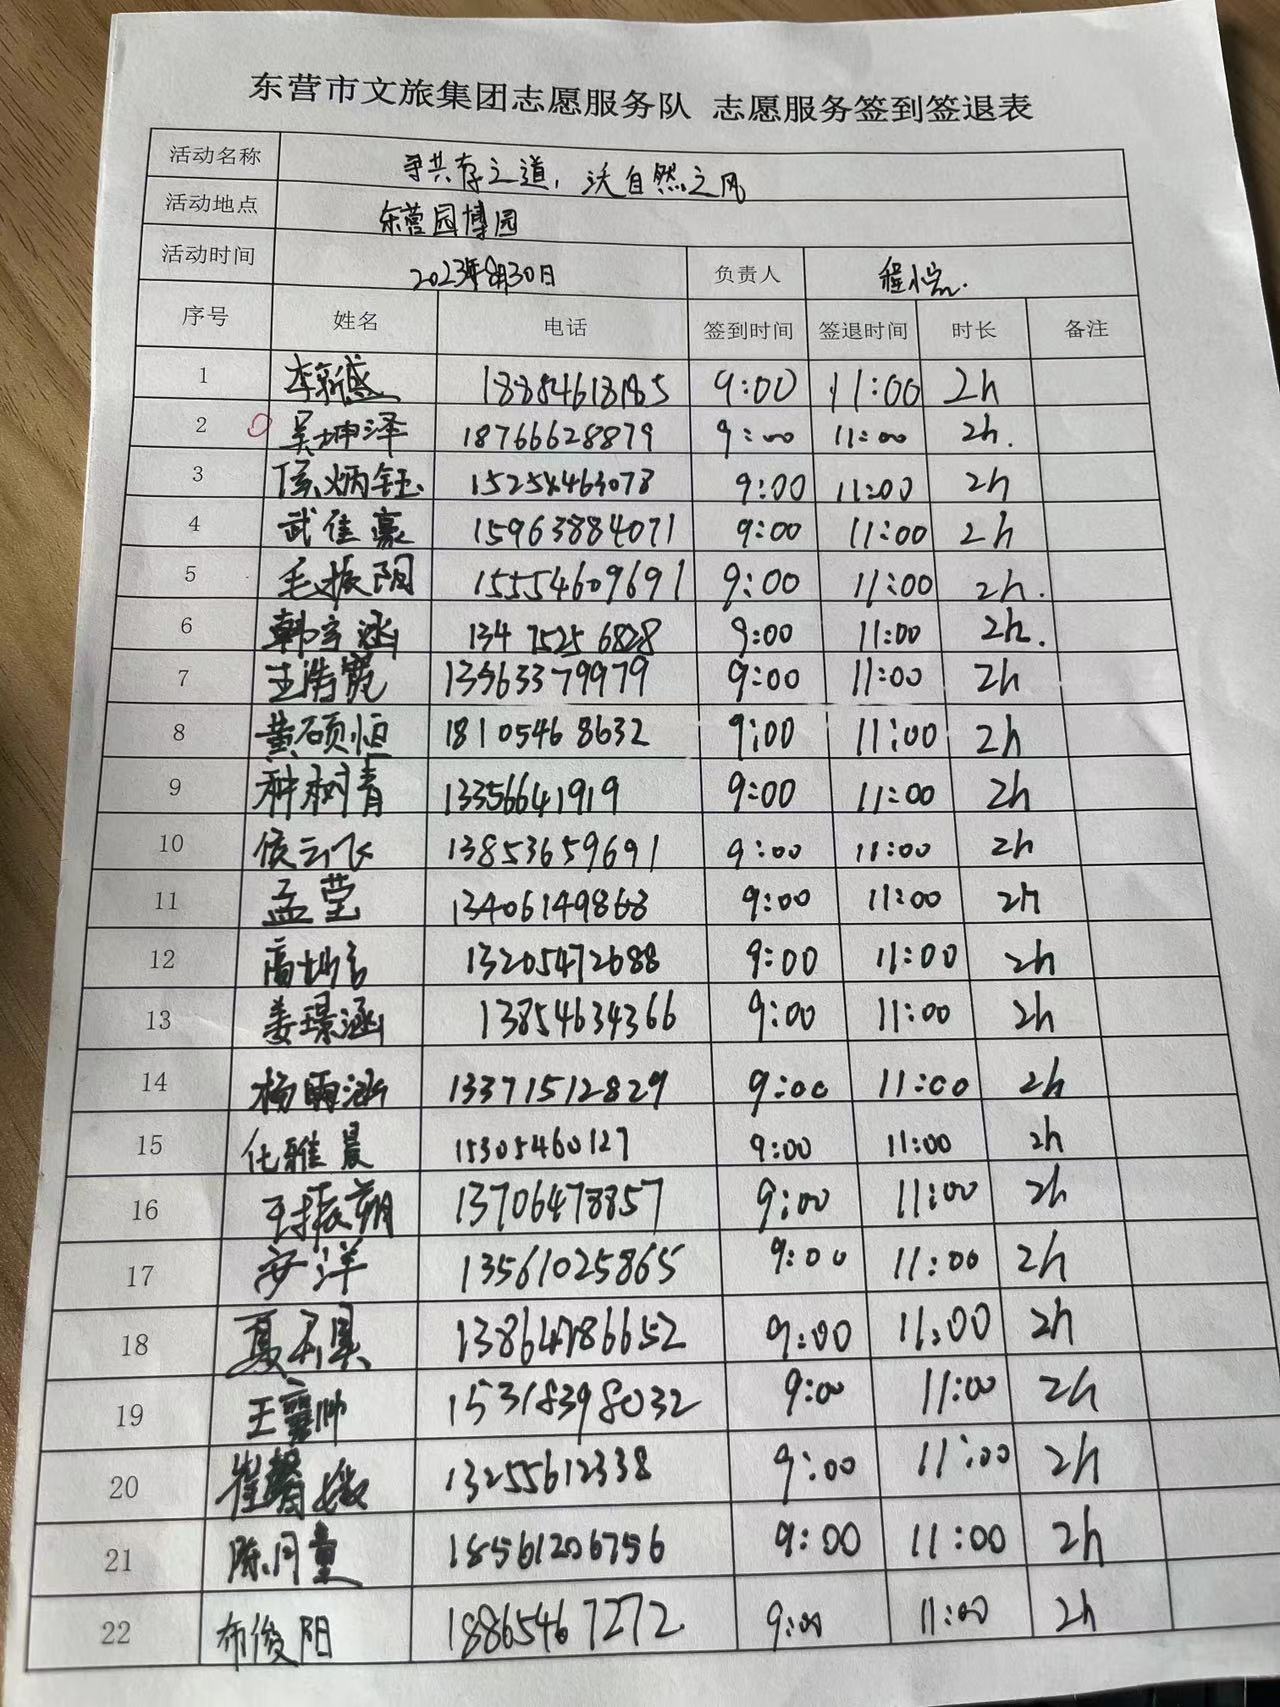 东营市文旅集团志愿服务队 志愿服务签到签退表
活动名称 寻共存之道，沃自然之风
活动地点 东营园博园
活动时间 2023年8月30日 负责人 程
序号 姓名 电话 签到时间 签退时间 时长 备注
1 李新盛 18854618185 9:00 11:00 2h
2 吴坤泽 18766628879 9:00 11:00 2h.
3 侯炳钰 9:00 11:00 2h
4 武佳豪 15963884071 9:00 11:00 2h
5 毛振阳 15554609691 9:00 11:00 2h.
6 韩宇涵 134 7525 6828 9:00 11:00 2h.
7 王浩宽 9:00 11:00 2h
8 黄硕恒 18105468632 9:00 11:00 2h
9 种树青 13356641919 9:00 11:00 2h
10 侯云飞 13853659691 9:00 11:00 2h
11 孟莹 13406149868 9:00 11:00 2h
12 13205472688 9:00 11:00 2h
13 姜璟涵 13854634366 9:00 11:00 2h
14 杨雨涵 13371512829 9:00 11:00 2h
15 化雅晨 15305460127 9:00 11:00 2h
16 王振朔 13706478857 9:00 11:00 2h
17 安洋 13561025865 9:00 11:00 2h
18 13864786652 9:00 11:00 2h
19 15318398032 9:00 11:00 2h
20 13255612338 9:00 11:00 2h
21 陈月童 18561206756 9:00 11:00 2h
22 布俊阳 18865467272 9:00 11:00 2h